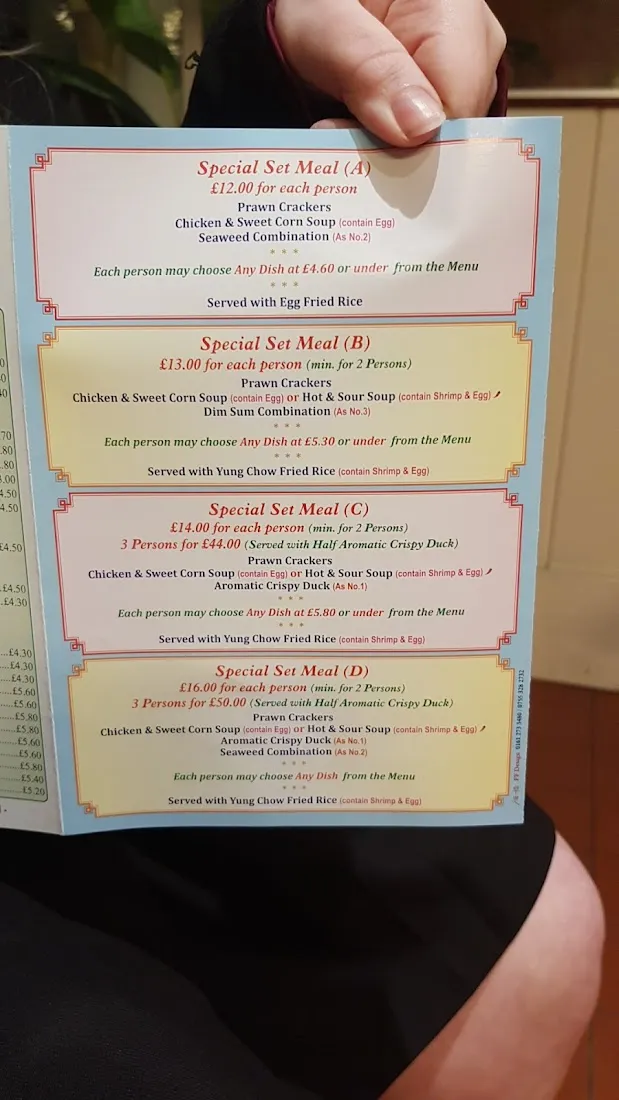 Special Set Meal (A)
£12.00 for each person
Prawn Crackers
Chicken & Sweet Corn Soup (contain Egg)
Seaweed Combination (As No.2)
* * *
Each person may choose Any Dish at £4.60 or under from the Menu
* * *
Served with Egg Fried Rice
Special Set Meal (B)
£13.00 for each person (min. for 2 Persons)
Prawn Crackers
Chicken & Sweet Corn Soup (contain Egg) or Hot & Sour Soup (contain Shrimp & Egg)
Dim Sum Combination (As No.3)
* * *
Each person may choose Any Dish at £5.30 or under from the Menu
* * *
Served with Yung Chow Fried Rice (contain Shrimp & Egg)
Special Set Meal (C)
£14.00 for each person (min. for 2 Persons)
3 Persons for £44.00 (Served with Half Aromatic Crispy Duck)
Prawn Crackers
Chicken & Sweet Corn Soup (contain Egg) or Hot & Sour Soup (contain Shrimp & Egg)
Aromatic Crispy Duck (As No.1)
* * *
Each person may choose Any Dish at £5.80 or under from the Menu
* * *
Served with Yung Chow Fried Rice (contain Shrimp & Egg)
Special Set Meal (D)
£16.00 for each person (min. for 2 Persons)
3 Persons for £50.00 (Served with Half Aromatic Crispy Duck)
Prawn Crackers
Chicken & Sweet Corn Soup (contain Egg) or Hot & Sour Soup (contain Shrimp & Egg)
Aromatic Crispy Duck (As No.1)
Seaweed Combination (As No.2)
* * *
Each person may choose Any Dish from the Menu
* * *
Served with Yung Chow Fried Rice (contain Shrimp & Egg)
£4.50
£4.50
£4.30
£4.30
£4.30
£4.30
£5.60
£5.60
£5.80
£5.80
£5.60
£5.60
£5.80
£5.40
£5.20